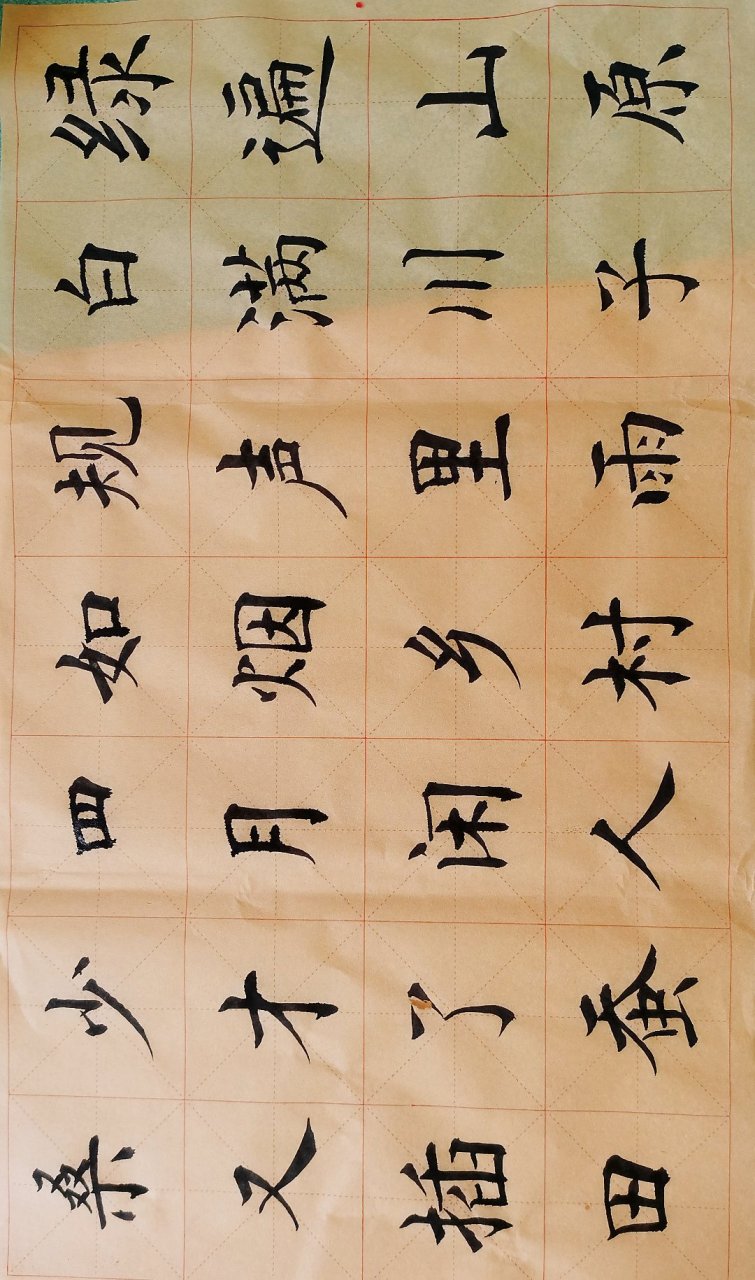 绿遍山原
白满川子
规声里雨
如烟乡村
四月闲人
少才了蚕
桑又插田